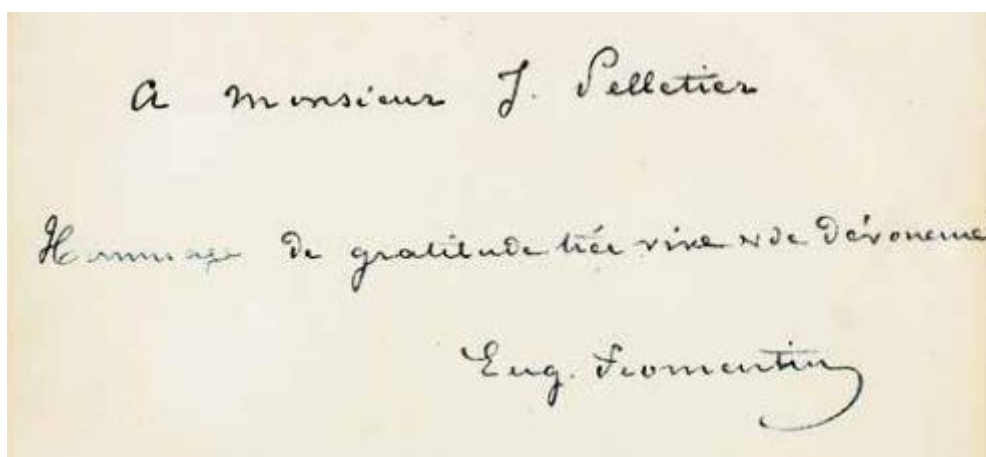 A Monsieur J. Pelletier
Hommage de gratitude très vive & de dévoueme
Eug. Fromentin